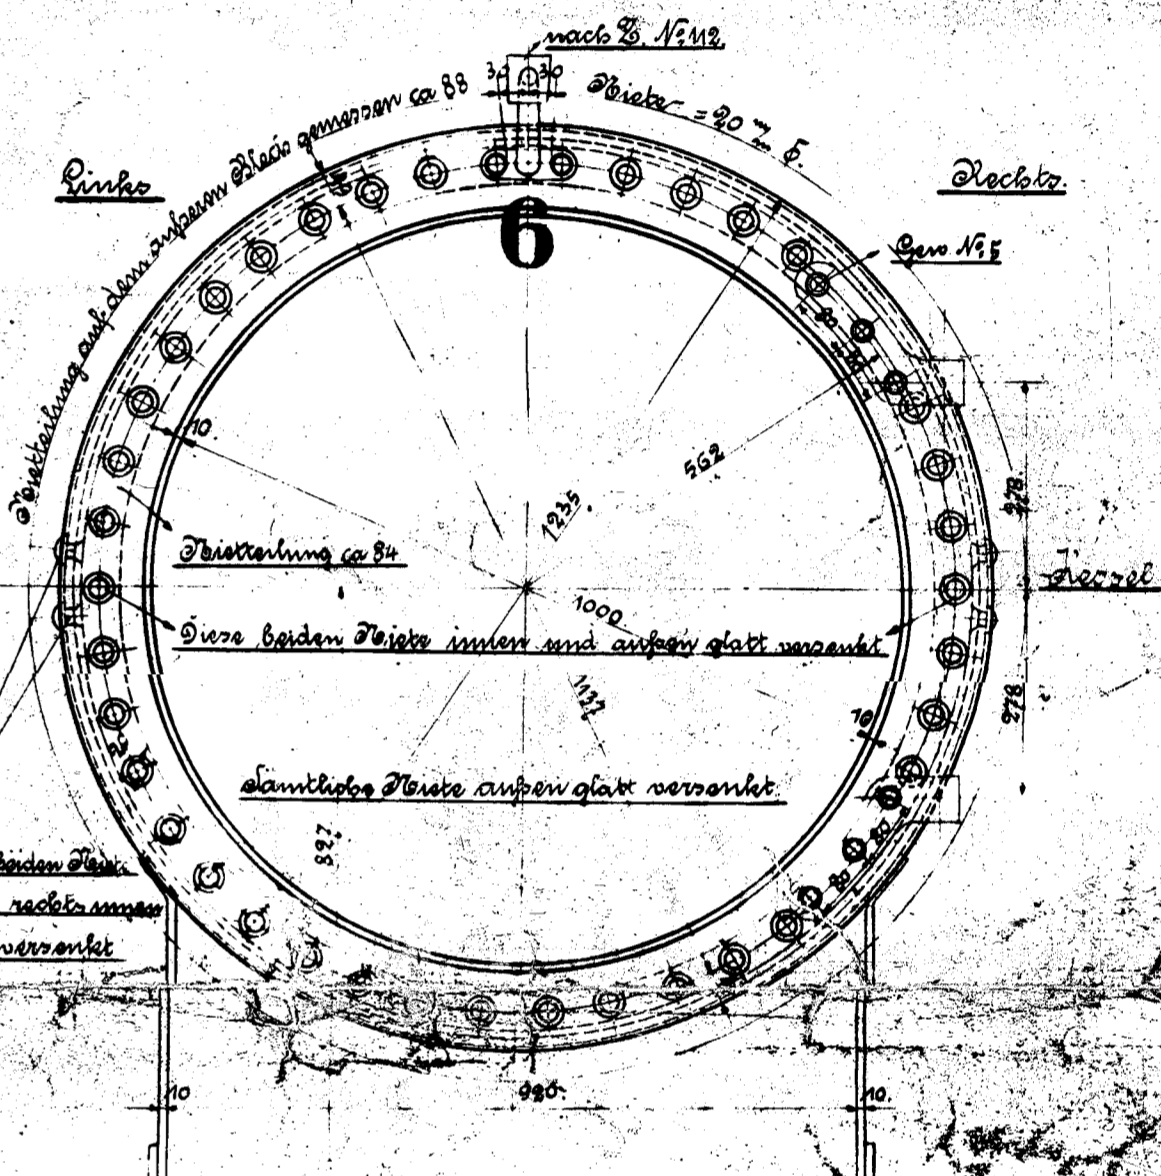 nach Z. No. 112.
30 30
Niete = 20 m/m ∅.
Nietteilung auf dem äußeren Blech gemessen ca 88
Links
Rechts.
6
Gew No. 5
80
10.
562
278
1235
Nietteilung ca 84
Kessel
1000
Diese beiden Niete innen und außen glatt versenkt
1137
278
10
Sämtliche Niete außen glatt versenkt.
827
80
80
beiden Niet.
rechts innen
versenkt
10
920.
10.